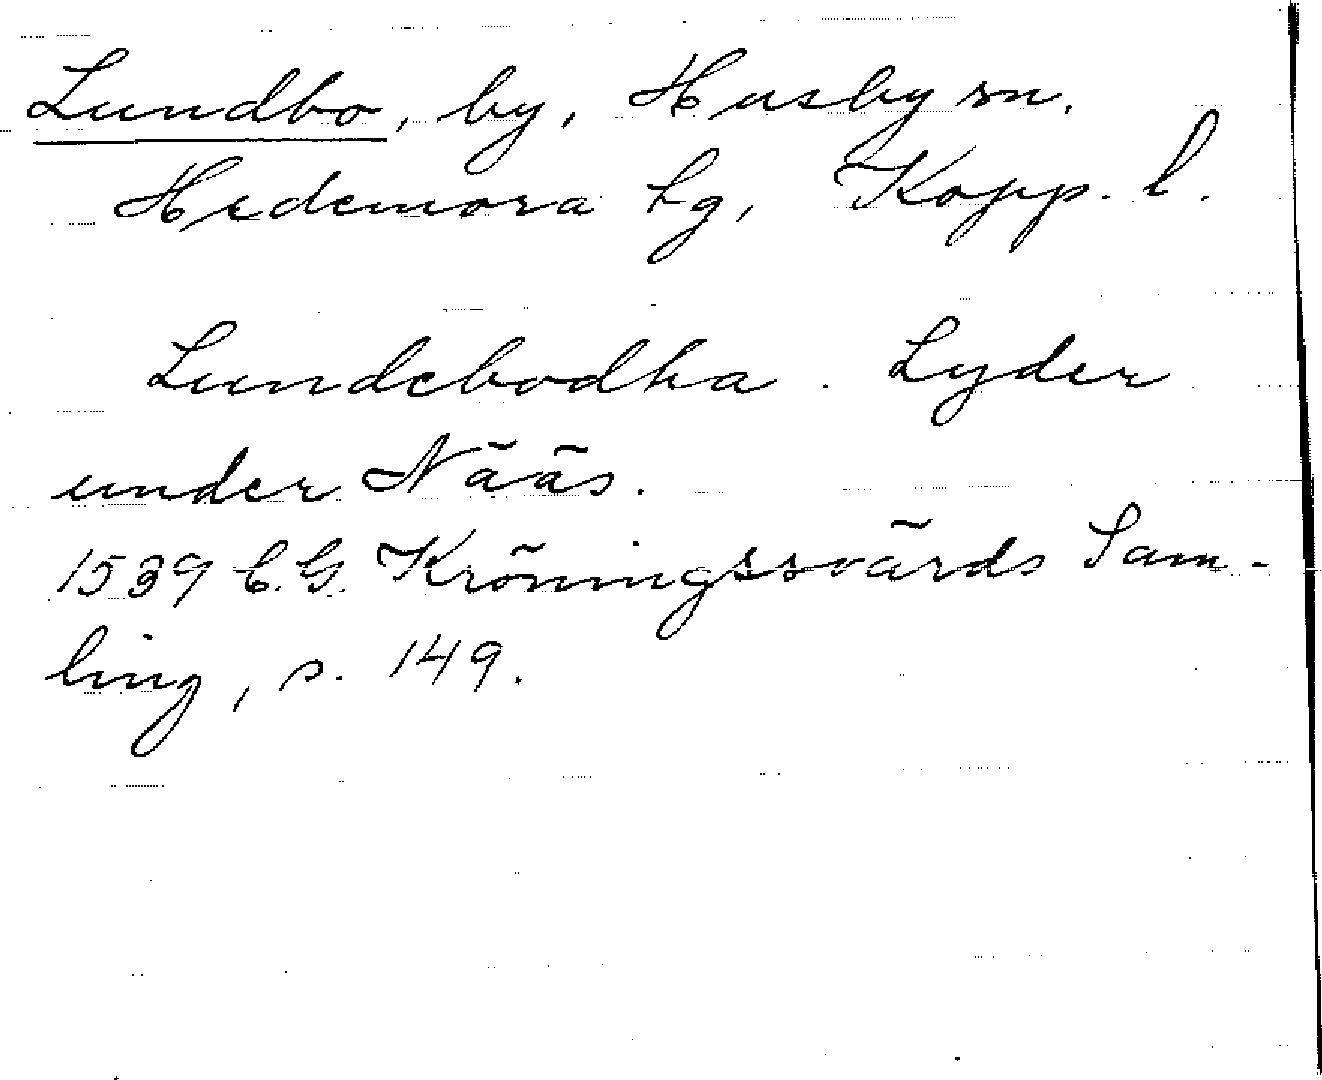 Lundbo, by, Husby sn.
Hedemora tg, Kopp. l.
Lundebodha. Lyder
under Nääs.
1539 C.G. Kröningssvärds Sam-
ling, s. 149.